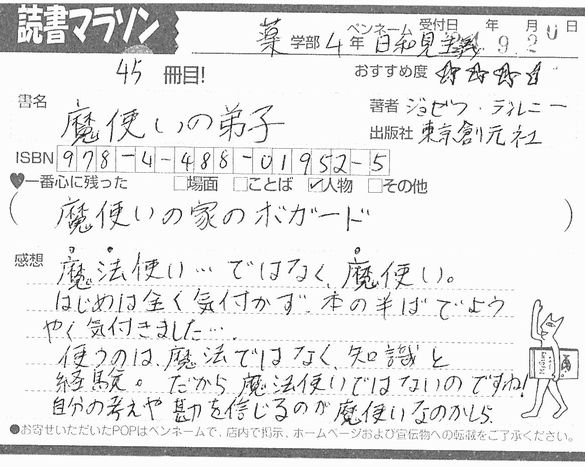 読書マラソン
ペンネーム 受付日 年 月 日
薬 学部 4年 日和見主義 9. 20
45 冊目! おすすめ度 ☆☆☆☆
書名 魔使いの弟子
著者 ジョゼフ・ディレニー
出版社 東京創元社
ISBN 978-4-488-01952-5
♥一番心に残った □場面 □ことば ☑人物 □その他
(魔使いの家のボガード)
感想 魔法使い…ではなく、魔使い。
はじめは全く気付かず、本の半ばでよう
やく気付きました…。
使うのは、魔法ではなく、知識と
経験。だから、魔法使いではないのですね!
自分の考えや勘を信じるのが魔使いなのかしら。
●お寄せいただいたPOPはペンネームで、店内で掲示、ホームページおよび宣伝物への転載をご了承ください。